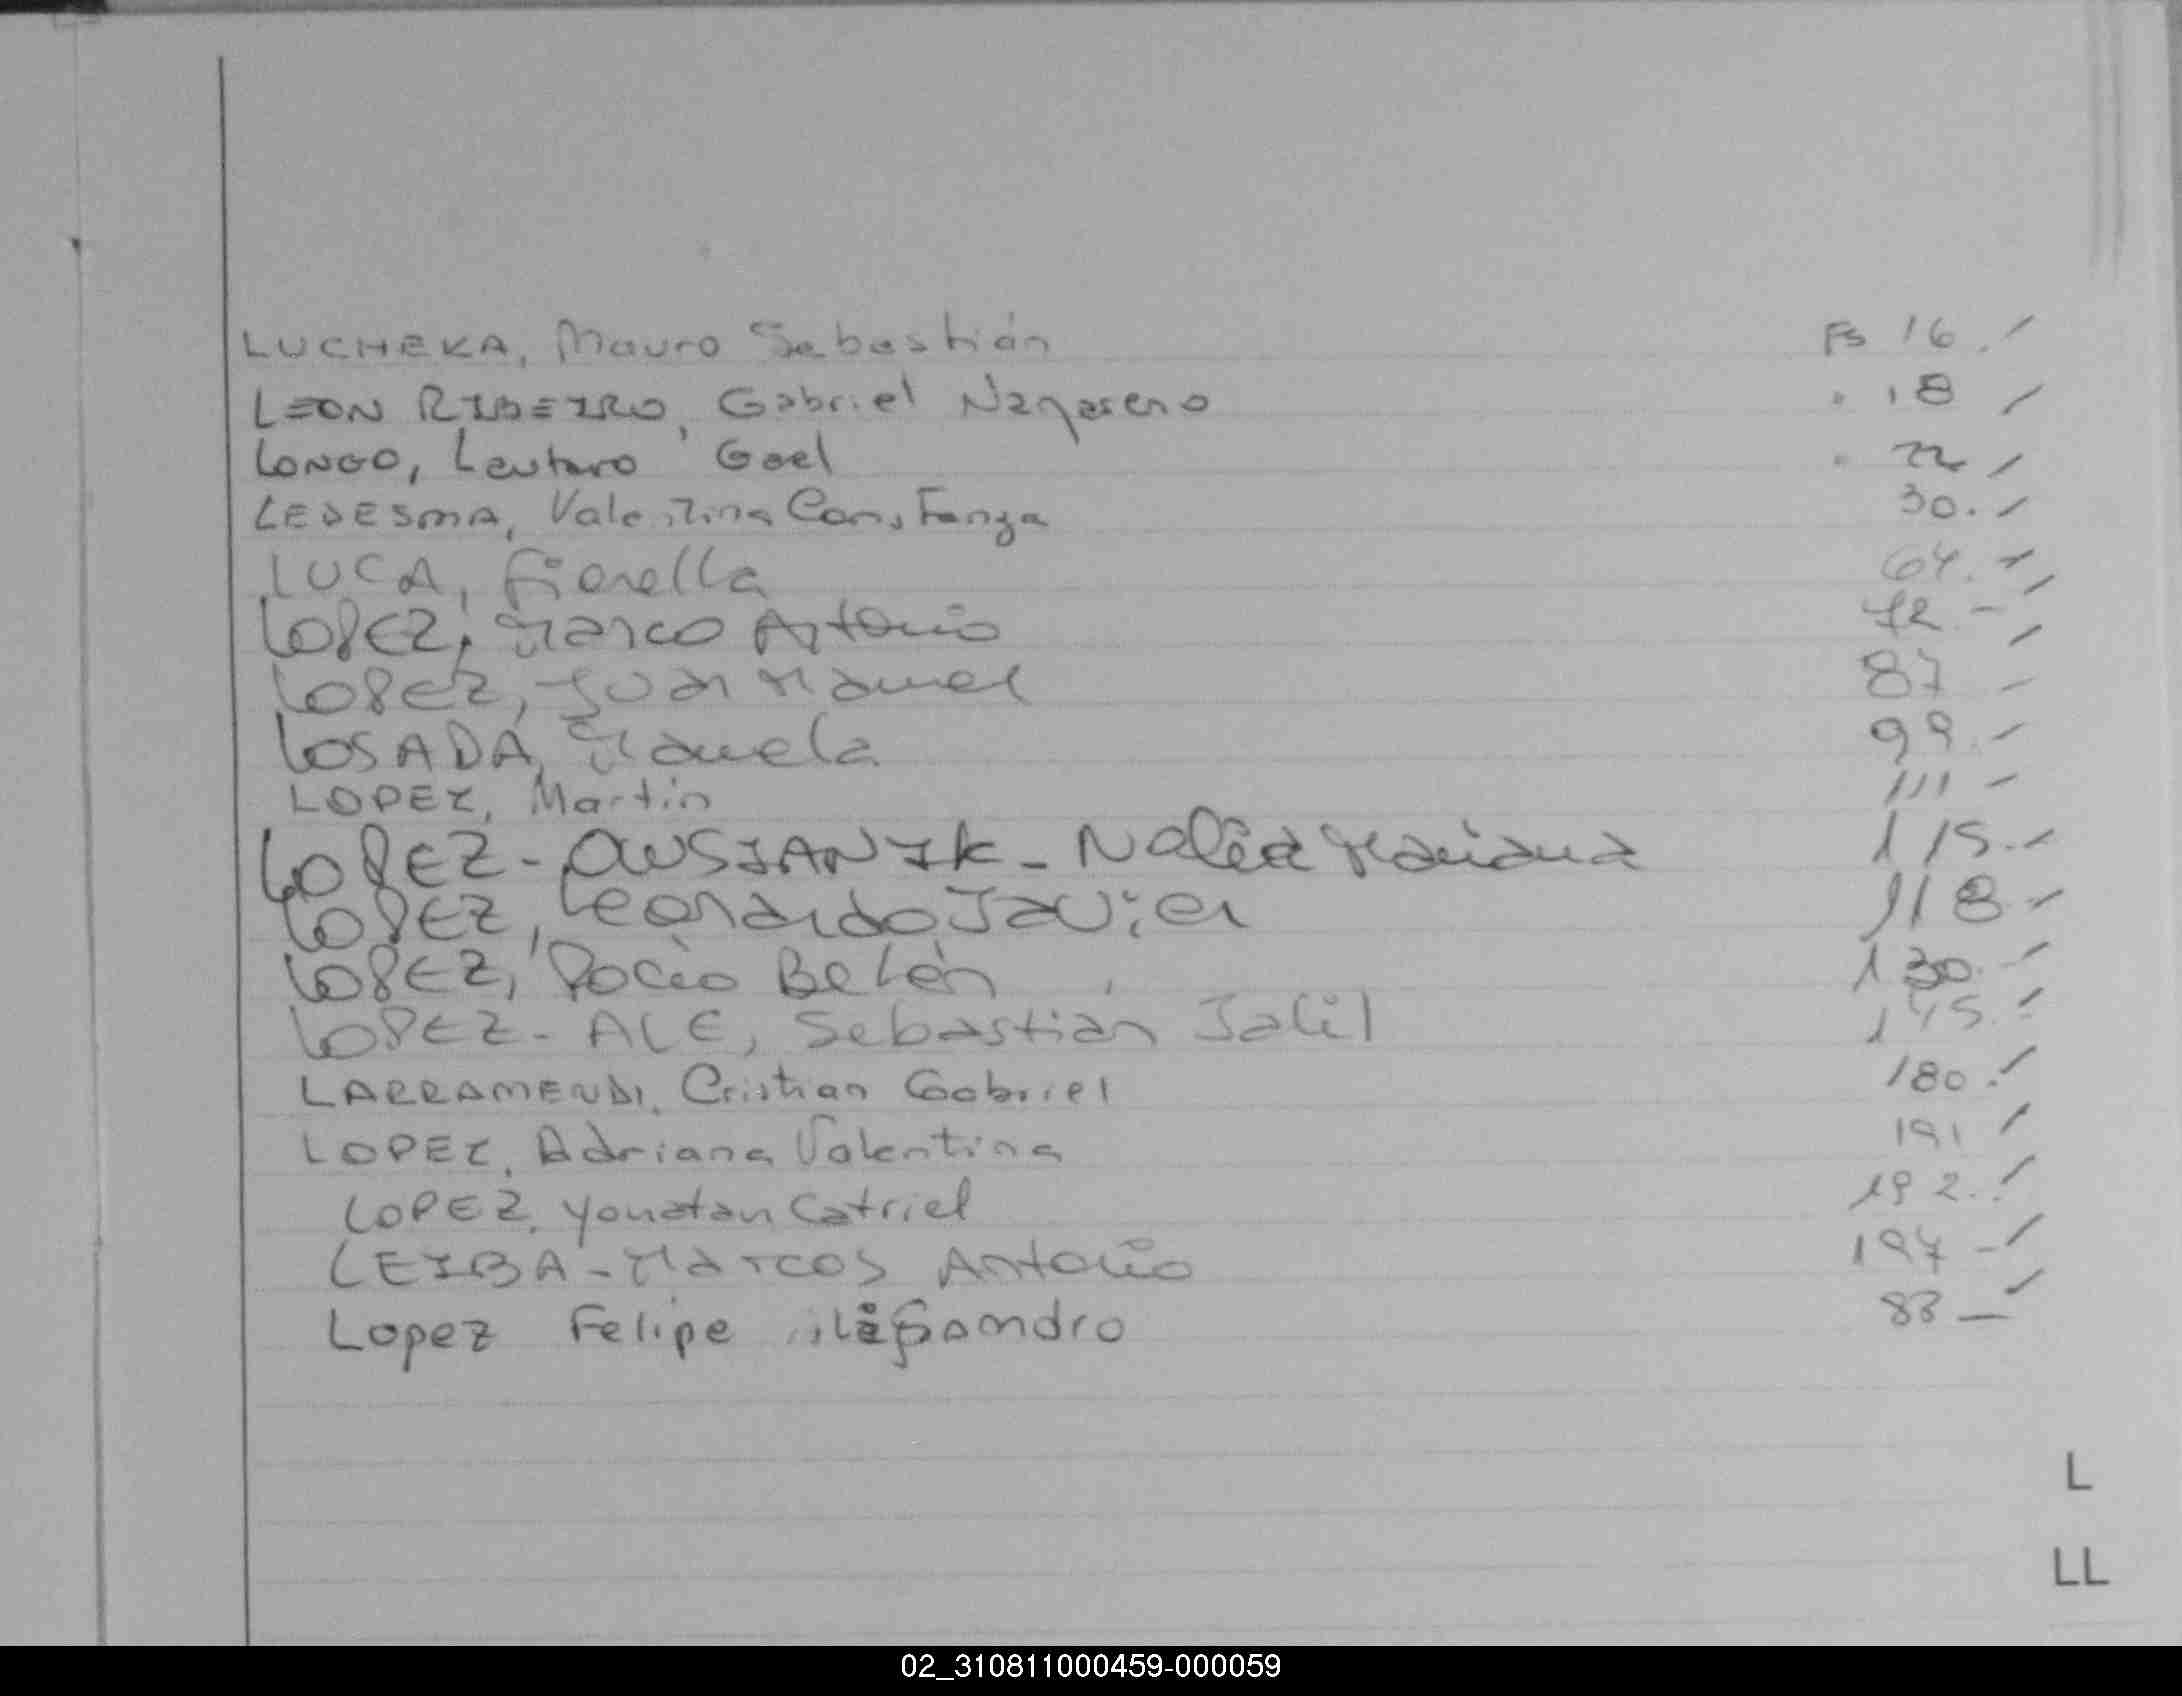 LUCHEKA, Mauro Sebastián Fs 16.
LEON RIBEIRO, Gabriel Nazareno " 18
LONGO, Lautaro Gael " 22
LEDESMA, Valentina Constanza 30.
LUCA, Fiorella 64.
LOPEZ, Marco Antonio 72 -
LOPEZ, Juan Manuel 87
LOSADA, Manuela 99.
LOPEZ, Martin 111
LOPEZ - OWSIANIK - Nalia Mariana 115.-
LOPEZ, Leonardo Javier 118
LOPEZ, Rocío Belén 130.
LOPEZ - ALE, Sebastián Jalil 145.
LARRAMENDI, Cristian Gabriel 180.
LOPEZ, Adriana Valentina 191
LOPEZ, Yonatan Catriel 192.
LEIBA - Marcos Antonio 197 -
Lopez Felipe 83 -
L
LL
02_310811000459-000059